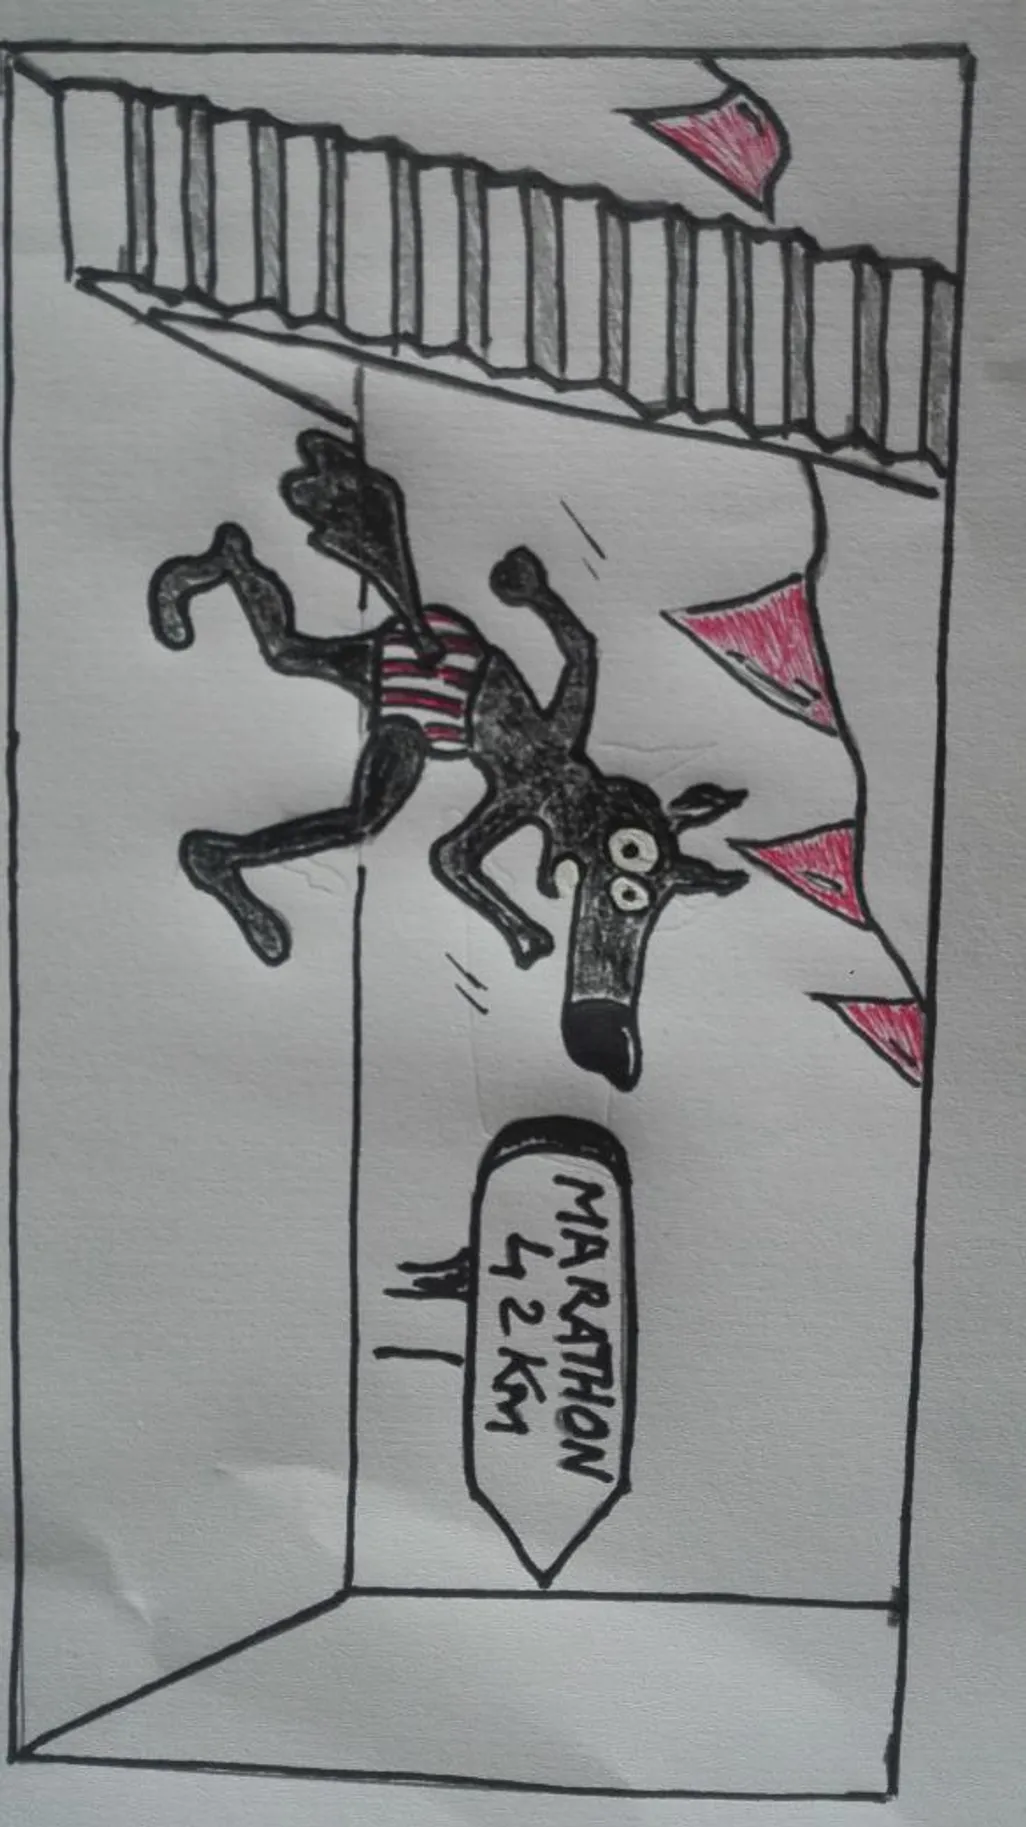 MARATHON
42KM